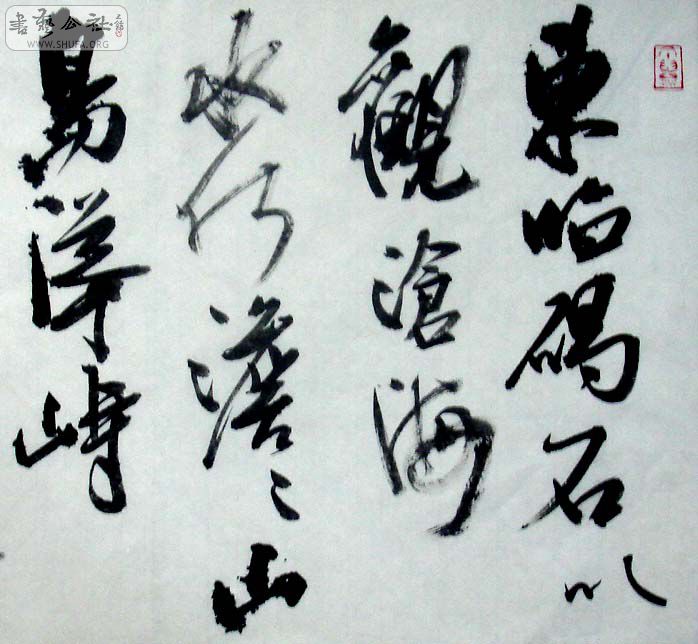 東臨碣石以
觀滄海
水何澹々山
島峙
書藝公社
WWW.SHUFA.ORG